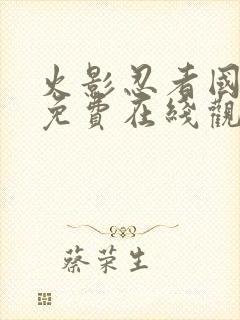 火影忍者國
免費在綫觀
蔡荣生